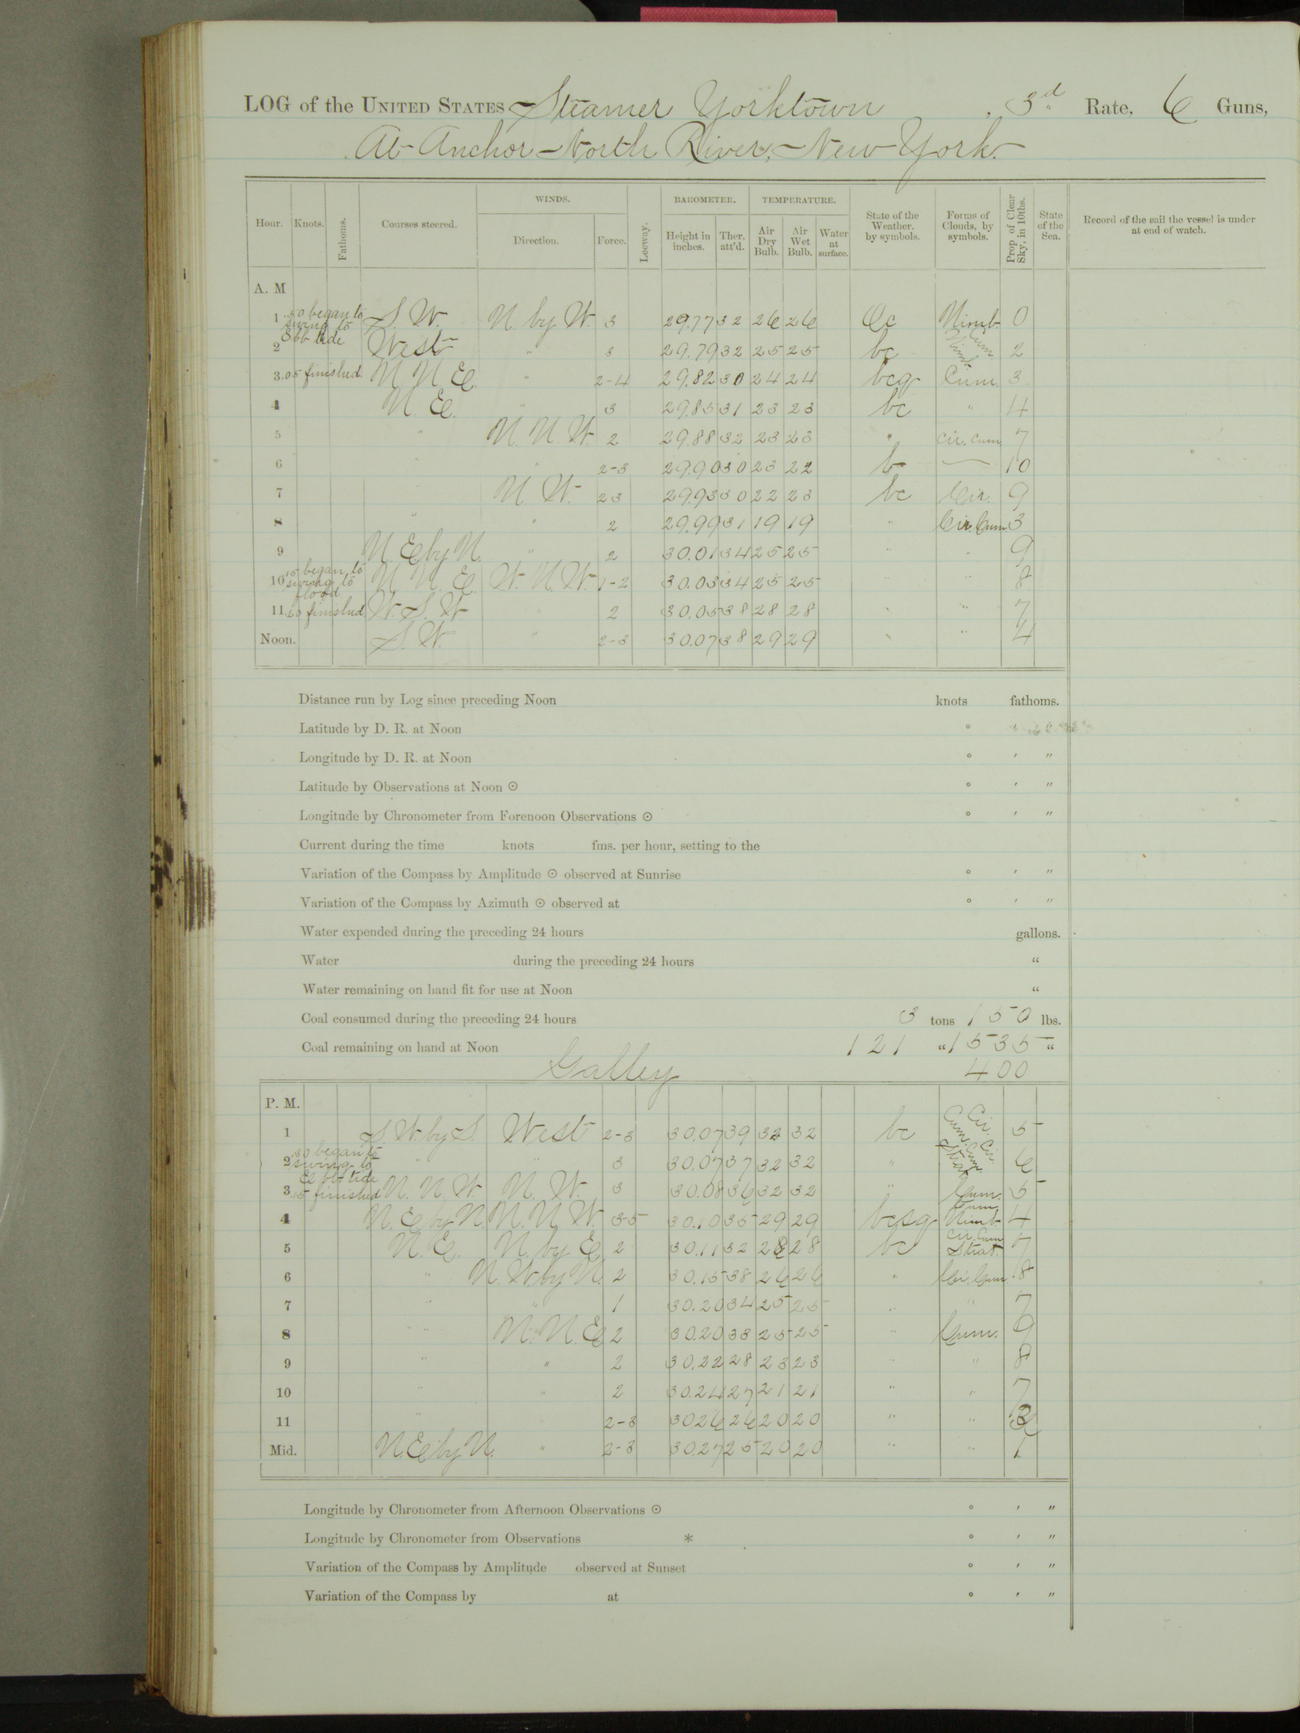 LOG of the UNITED STATES Steamer Yorktown, 3d Rate, 6 Guns,
At Anchor North River, New York
Hour. Knots. Fathoms. Courses steered. WINDS. Direction. Force. Leeway. BAROMETER. Height in inches. Ther. att'd. TEMPERATURE. Air Dry Bulb. Air Wet Bulb. Water at surface. State of the Weather. by symbols. Forms of Clouds, by symbols. Prop of Clear Sky, in 10ths. State of the Sea. Record of the sail the vessel is under at end of watch.
A. M
1 .50 began to swing to S. W. N by W. 3 29.77 32 26 26 Oc Nimb 0
2 Ebb tide West " 3 29.79 32 25 25 bc Cum Nimb 2
3 .05 finished N N E " 2-4 29.82 30 24 24 bcq Cum. 3
4 N. E. " 3 29.85 31 23 23 bc " 4
5 " N. N. W. 2 29.88 32 23 23 " cir. cum 7
6 " " 2-3 29.90 30 23 22 b — 10
7 N. W. 2 3 29.93 30 22 23 bc Cir. 9
8 " " 2 29.99 31 19 19 " Cir. Cum 3
9 N. E by N. " 2 30.01 34 25 25 " " 9
10 .15 began to swing to flood N. N. E. W. N. W. 1-2 30.03 34 25 25 " " 8
11 .50 finished W. S. W " 2 30.05 38 28 28 " " 7
Noon. S. W. " 2-3 30.07 38 29 29 " " 4
Distance run by Log since preceding Noon knots fathoms.
Latitude by D. R. at Noon °
Longitude by D. R. at Noon ° ′ ″
Latitude by Observations at Noon ☉ ° ′ ″
Longitude by Chronometer from Forenoon Observations ☉ ° ′ ″
Current during the time knots fms. per hour, setting to the
Variation of the Compass by Amplitude ☉ observed at Sunrise ° ′ ″
Variation of the Compass by Azimuth ☉ observed at ° ′ ″
Water expended during the preceding 24 hours gallons.
Water during the preceding 24 hours “
Water remaining on hand fit for use at Noon “
Coal consumed during the preceding 24 hours 3 tons 150 lbs.
Coal remaining on hand at Noon 121 “ 1535 “
Galley 400
P. M.
1 S. W. by S. West 2-3 30.07 39 32 32 bc Cir. Cum. 5
2 .30 began to swing to " " 3 30.07 37 32 32 " Cir. Cum. Strat 6
3 Ebb tide .15 finished N. N. W N. W. 3 30.08 36 32 32 " Cum. 5
4 N. E by N N. N. W. 3-5 30.10 35 29 29 bcsq Cum Nimb 4
5 N. E. N. by E. 2 30.11 32 28 28 bc Cir. Cum Strat. 7
6 " N. W by N 2 30.15 38 26 26 " Cir. Cum. 8
7 " " 1 30.20 34 25 25 " " 7
8 " N. N. E 2 30.20 33 25 25 " Cum. 9
9 " " 2 30.22 28 23 23 " " 8
10 " " 2 30.24 27 21 21 " " 7
11 2-3 30.26 26 20 20 " "
Mid. N. E by N. " 2-3 30.27 25 20 20 " " 1
Longitude by Chronometer from Afternoon Observations ☉ ° ′ ″
Longitude by Chronometer from Observations * ° ′ ″
Variation of the Compass by Amplitude observed at Sunset ° ′ ″
Variation of the Compass by at ° ′ ″